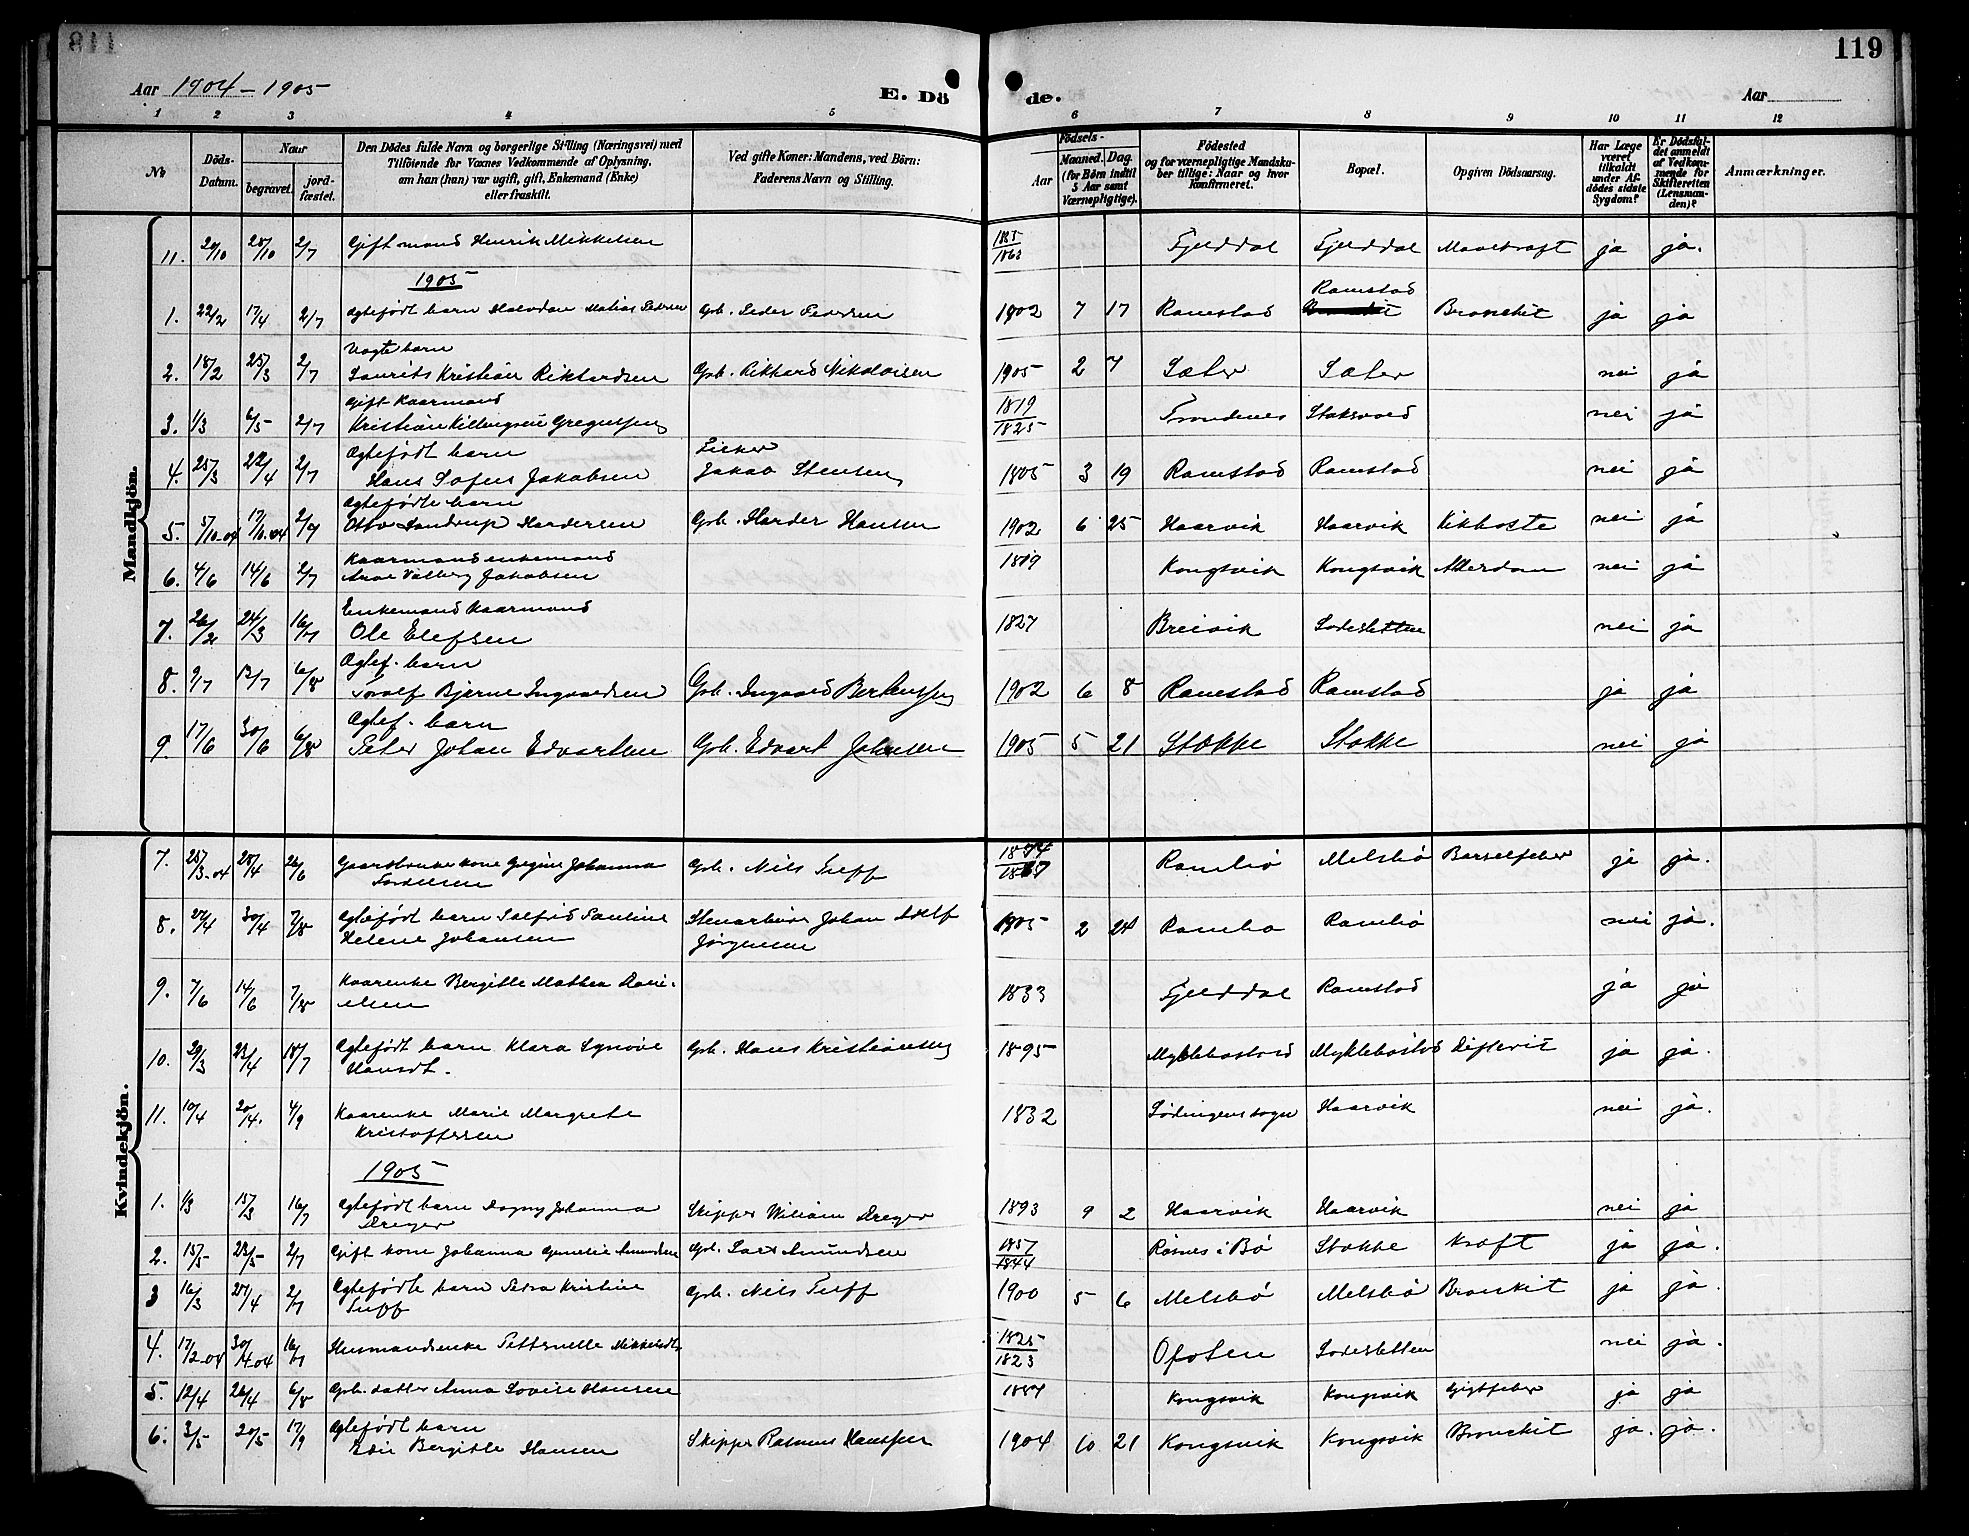 118
119
Aar 1904-1905
E. Dö
de.
Aar
1 2 3 4 5 6 7 8 9 10 11 12
No
Döds-Datum.
Naar
begravet.
jord-fæstet.
Den Dödes fulde Navn og borgerlige Stilling (Næringsvei) med
Tilföiende for Voxnes Vedkommende af Oplysning,
om han (hun) var ugift, gift, Enkemand (Enke)
eller fraskilt.
Ved gifte Koner: Mandens, ved Börn:
Faderens Navn og Stilling.
Födsels-
Aar
Maaned. Dag.
(for Börn indtil
5 Aar samt
Værnepligtige).
Födested
og for værnepligtige Mandskaber tillige: Naar og hvor
konfirmeret.
Bopæl.
Opgiven Dödsaarsag.
Har Læge
været
tilkaldt
under Afdödes sidste
Sygdom?
Er Dödsfaldet anmeldt
af Vedkommende for
Skifteretten
(Lensmanden)?
Anmærkninger.
Mandkjön.
11. 20/10 25/10 2/7 Gift mand Henrik Mikkelsen 1863 Fjelddal Fjelddal Mavekraft ja ja.
1905
1. 22/2 17/4 2/7 Ægtefødt barn Halvdan Matias Pedersen Gbr. Peder Pedersen 1902 7 17 Ramstad Ramstad Bronchit ja ja
2. 18/2 25/3 2/7 Uægte barn
Laurits Kristian Rikhardsen Gbr. Rikhard Nikolaisen 1905 2 7 Sæter Sæter nei ja
3. 1/3 6/5 2/7 Gift Kaarmand
Kristian Killingsen Gregussen 1819 1825 Trondenes nei ja
4. 25/3 22/4 2/7 Ægtefødt barn
Hans Sofus Jakobsen Fisker
Jakob Stensen 1805 3 19 Ramstad Ramstad nei ja
5. 5/10-04 17/10-04 2/7 Ægtefødte barn
Otto Sandrup Hardersen Gbr. Harder Hansen 1902 6 25 Haarvik Haarvik Kikhoste nei ja
6. 4/6 14/6 2/7 Kaarmand enkemand
Arne Valberg Jakobsen 1819 Kongsvik Kongsvik Alderdom nei ja
7. 26/2 24/3 16/7 Enkemand Kaarmand
Ole Elefsen 1827 Breivik Sodesletten nei ja
8. 9/7 12/7 6/8 Ægtef. barn
Toralf Bjarne Ingvaldsen Gbr. Ingvald Bertensen 1902 6 8 Ramstad Ramstad ja ja
9. 17/6 30/6 6/8 Ægtef. barn
Peter Johan Edvartsen Gbr. Edvart Johnsen 1905 5 21 Stokke Stokke nei ja
Kvindekjön.
7. 25/3-04 25/4 26/6 Gaardbruker kone Gregine Johanna
Gbr. Nils Tuff 1874 Rambø Melsbø Barselfeber ja ja.
8. 27/4 30/4 7/8 Ægtefødt barn Salfrid Pauline
Helene Johansen Stenarbeider Johan Adolf
Jørgensen 1905 2 24 Rambø Rambø nei ja.
9. 7/6 14/6 7/8 Kaarenke Bergitte Mathea Dani-
elsen 1833 Fjelddal Ramstad ja ja
10. 29/3 23/4 18/7 Ægtefødt barn Klara Synøve
Hansdt. Gbr. Hans Kristiansen 1895 Myklebostad Myklebostad Difterit ja ja.
11. 10/4 20/4. 4/9 Kaarenke Marie Margrete
Kristoffersen 1832 Lødingens sogn Haarvik nei ja.
1905
1. 1/3 15/3 16/7 Ægtefødt barn Dagny Johanna
Dreyer Skipper Wiliam Dreyer 1893 9 2 Haarvik Haarvik nei ja
2. 15/5 22/5 2/7 Gift kone Johanna Amundsen Gbr. Lars Amundsen 1857 1844 Røsnes i Bø Stokke Kræft ja ja.
3 16/3 27/4 2/7 Ægtefødte barn Petra Kristine
Tuff Gbr. Nils Tuff 1900 5 6 Melsbø Melsbø Bronkit ja ja.
4. 17/2-04 30/4-04 16/7 Husmandsenke Petternelle Mikkelsdt. 1825 1823 Ofoten Sodesletten nei ja.
5. 12/4 26/4 6/8 Gbr. datter Anna Lovise Hansen 1887 Kongsvik Kongsvik Gigtfeber ja ja
6. 3/5 20/5 17/9 Ægtefødt barn
Edie Bergitte Hansen Skipper Rasmus Hanssen 1904 10 21 Kongsvik Kongsvik Bronchit ja. ja.